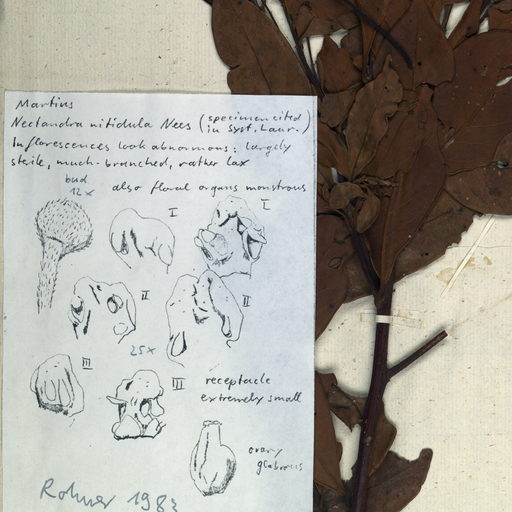 Martius
Nectandra nitidula Nees (specimen cited in Syst. Laur.)
Inflorescences look abnormous: largely
sterile, much-branched, rather lax
also floral organs monstrous
bud
12x
I
I
II
II
25x
III
III
receptacle
extremely small
ovary
glabrous
Rohwer 1983